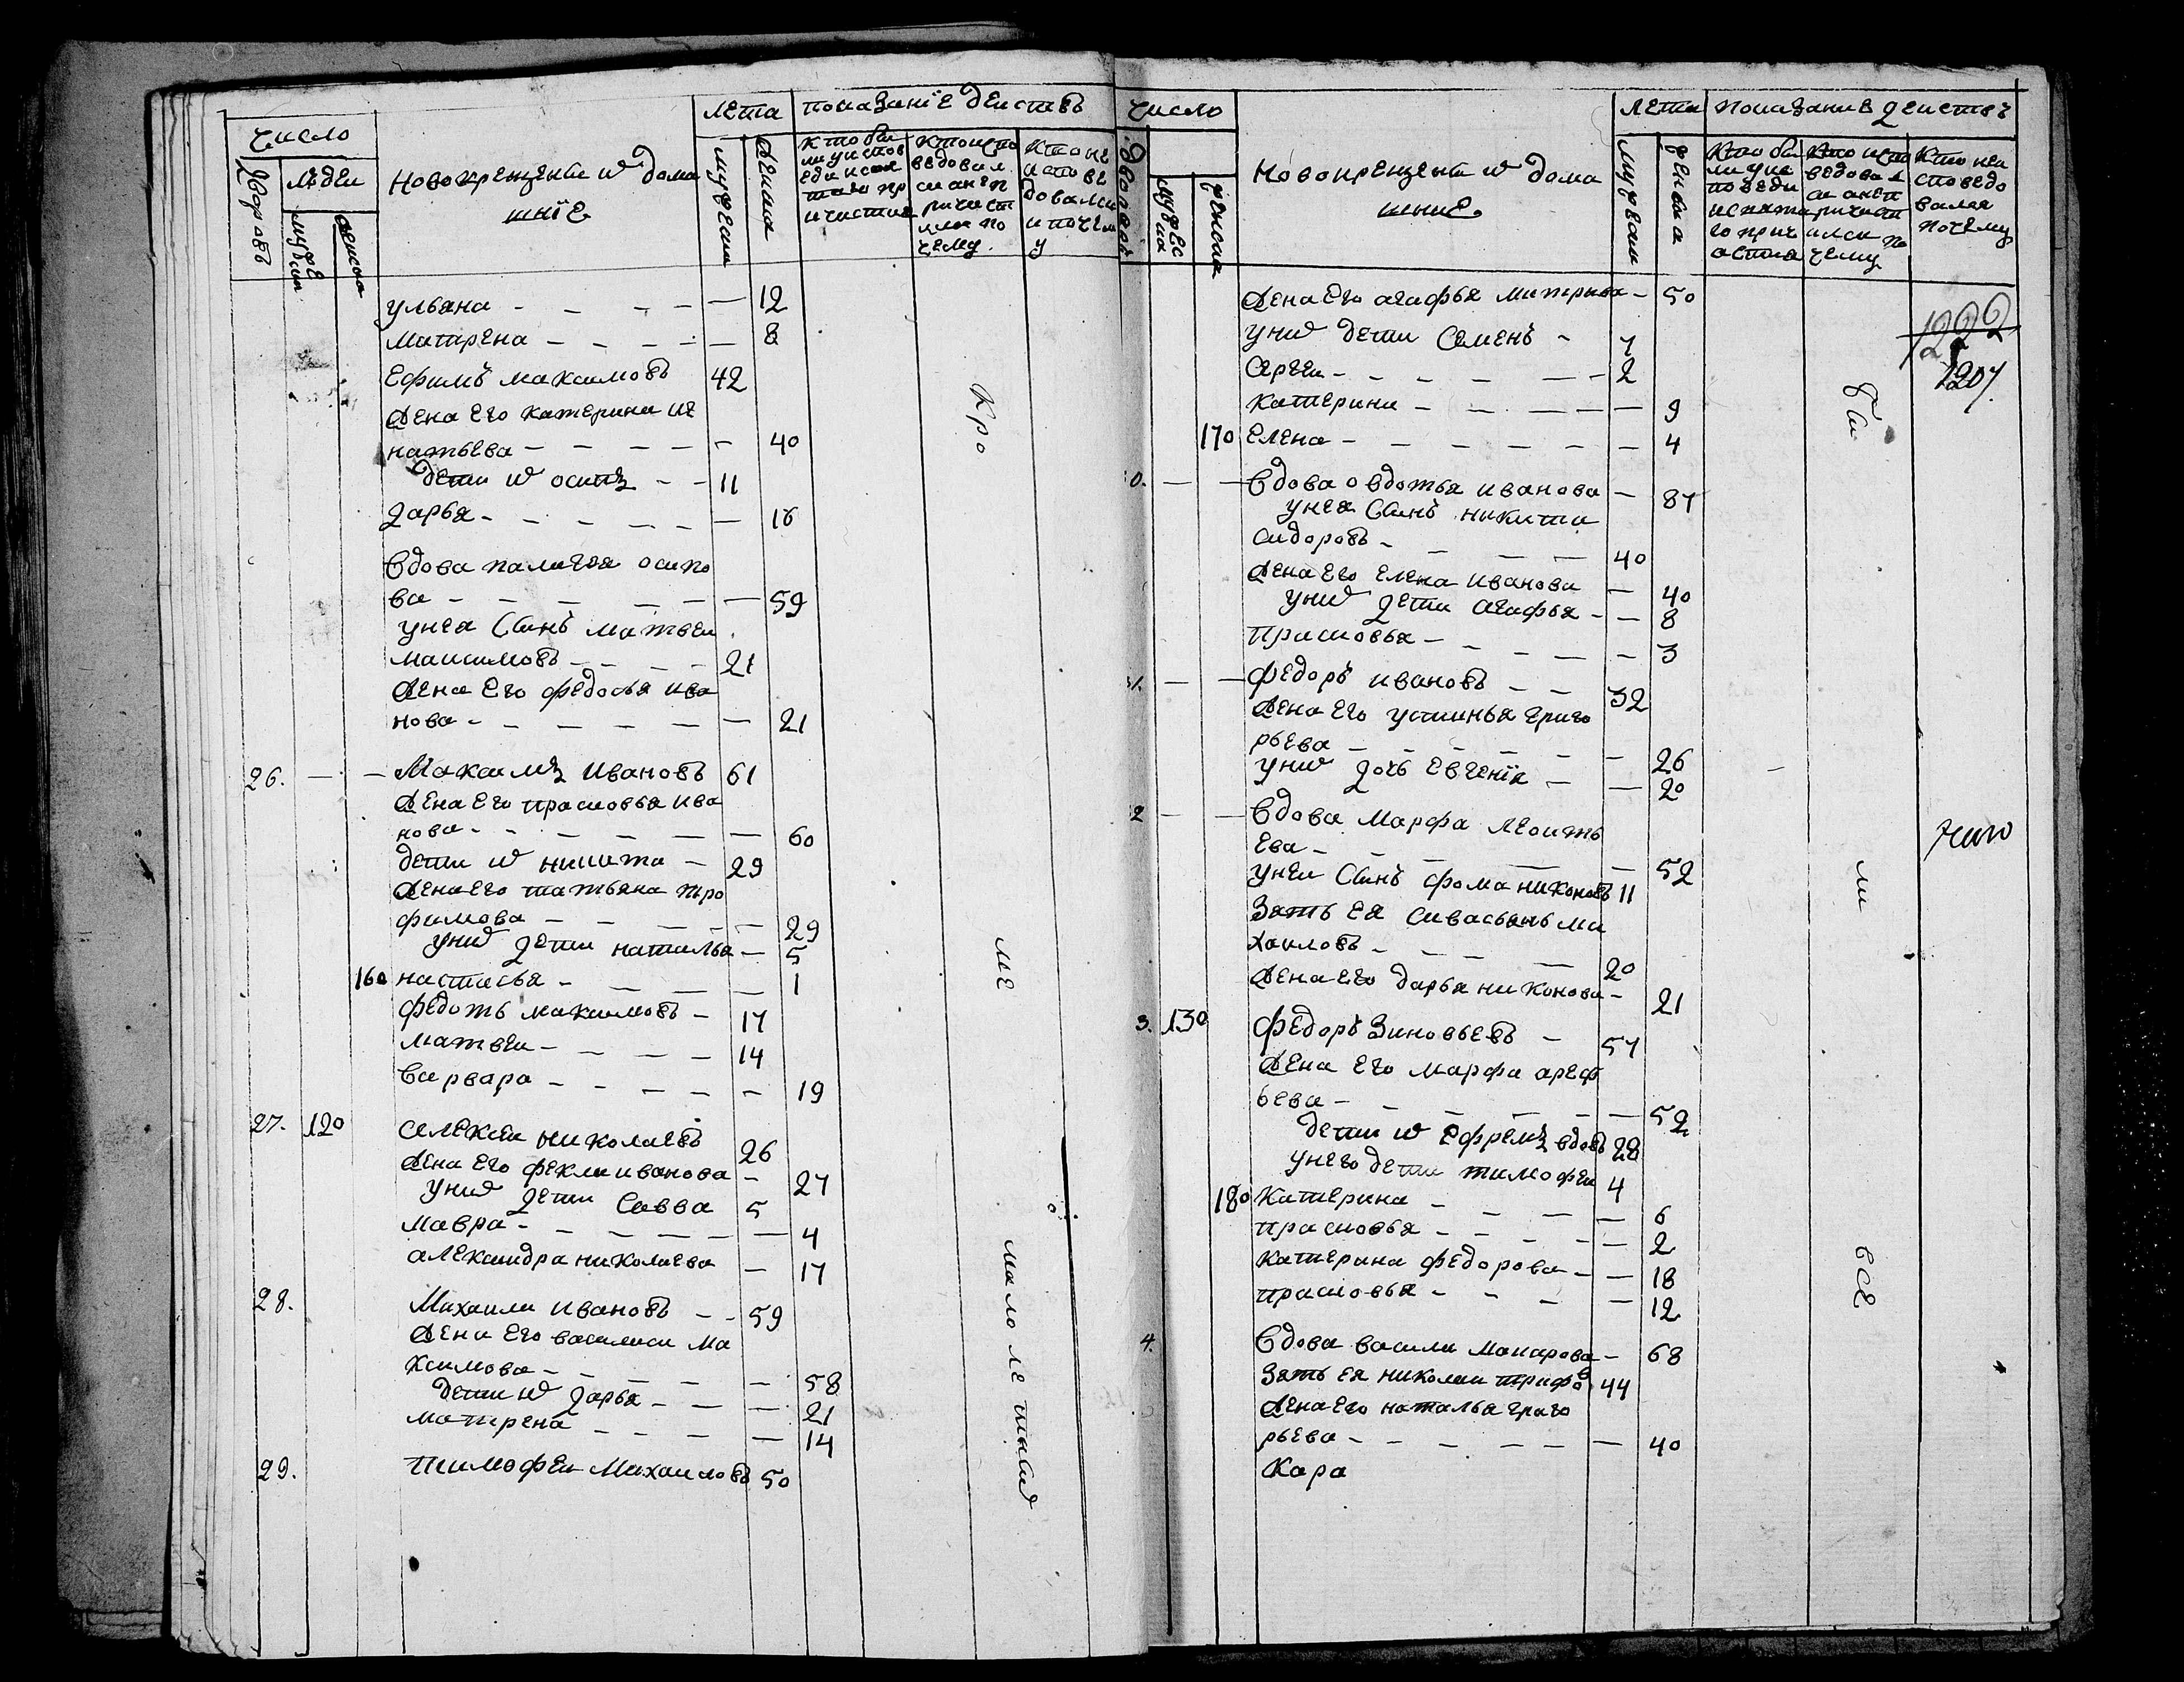 число
лета
показанїе деиствъ
Дворовъ
людеи
мужеска
женска
новокрещены и домашнїе
мужеска
женска
кто были у исповеди и святаго причастия
кто исповедовался а не причастился и почему
кто не исповедовался и почему
ульяна - - - - — 12
матрена — - - - — 8
Ефимъ максимовъ 42
жена его катерина иг
натьева — - - - - 40
дети ихъ осипъ - - 11
дарья - - - - - — 16
вдова палагея осипо
ва - - - - - — 59
у нея сынъ матвеи
максимовъ - - - - 21
жена его федосья ива
нова - - - - - — 21
26. — — Максимъ ивановъ 61
жена его прасковья ива
нова - - - - — 60
дети ихъ никита — 29
жена его татьяна тро
фимова - - - — 29
у нихъ дети наталья — 5
160 настасья - - - — 1
федотъ максимовъ - 17
матвеи - - - - - 14
варвара - - - - - 19
27. 120 алексеи николаевъ 26
жена его фекла иванова - 27
у нихъ дети савва 5
мавра - - - - — 4
александра николаева — 17
28. Михаила ивановъ - - 59
жена его василиса ма
ксимова - - - - - 58
дети ихъ дарья - - — 21
матрена - - - — 14
29. тимофеи михаиловъ 50
Кро
ме
малолетныхъ
число
лета
показание деиствъ
Дворовъ
мужеска
женска
новокрещены и домашние
мужеска
женска
кто были у исповеди и святаго причастия
кто исповедовался а не причастился и почему
кто не исповедовался и почему
жена его агафья митрева - 50
у нихъ дети семенъ - 7
сергеи - - - - — 2
катерина - - - - — 9
170 елена - - - - - — 4
0. — — вдова овдотья иванова — 87
у нея сынъ никита
сидоровъ - - - — 40
жена его елена иванова — 40
у нихъ дети агафья - — 8
прасковья - - - - — 3
1. — — федоръ ивановъ - - 32
жена его устинья григо
рьева - - - - — 26
у нихъ дочь евгенїя — — 20
2 — — вдова марфа леонть
ева - - - — — 52
у неи сынъ фома никоновъ 11
зять ея савасьянъ ми
хаиловъ - - - — 20
жена его дарья никонова - 21
3. 130 федоръ зиновьевъ - 57
жена его марфа ареф
ьева - - - - - — 52
дети ихъ ефремъ вдовъ 28
у него дети тимофеи 4
180 катерина - - - - — 6
прасковья - - - - — 2
катерина федорова - — 18
прасковья - - - — 12
4. вдова васили макарова - 68
зять ея николаи трифо 44
жена его наталья григо
рьева - - - - - — 40
Кара
бы
ли
все
1222
1207